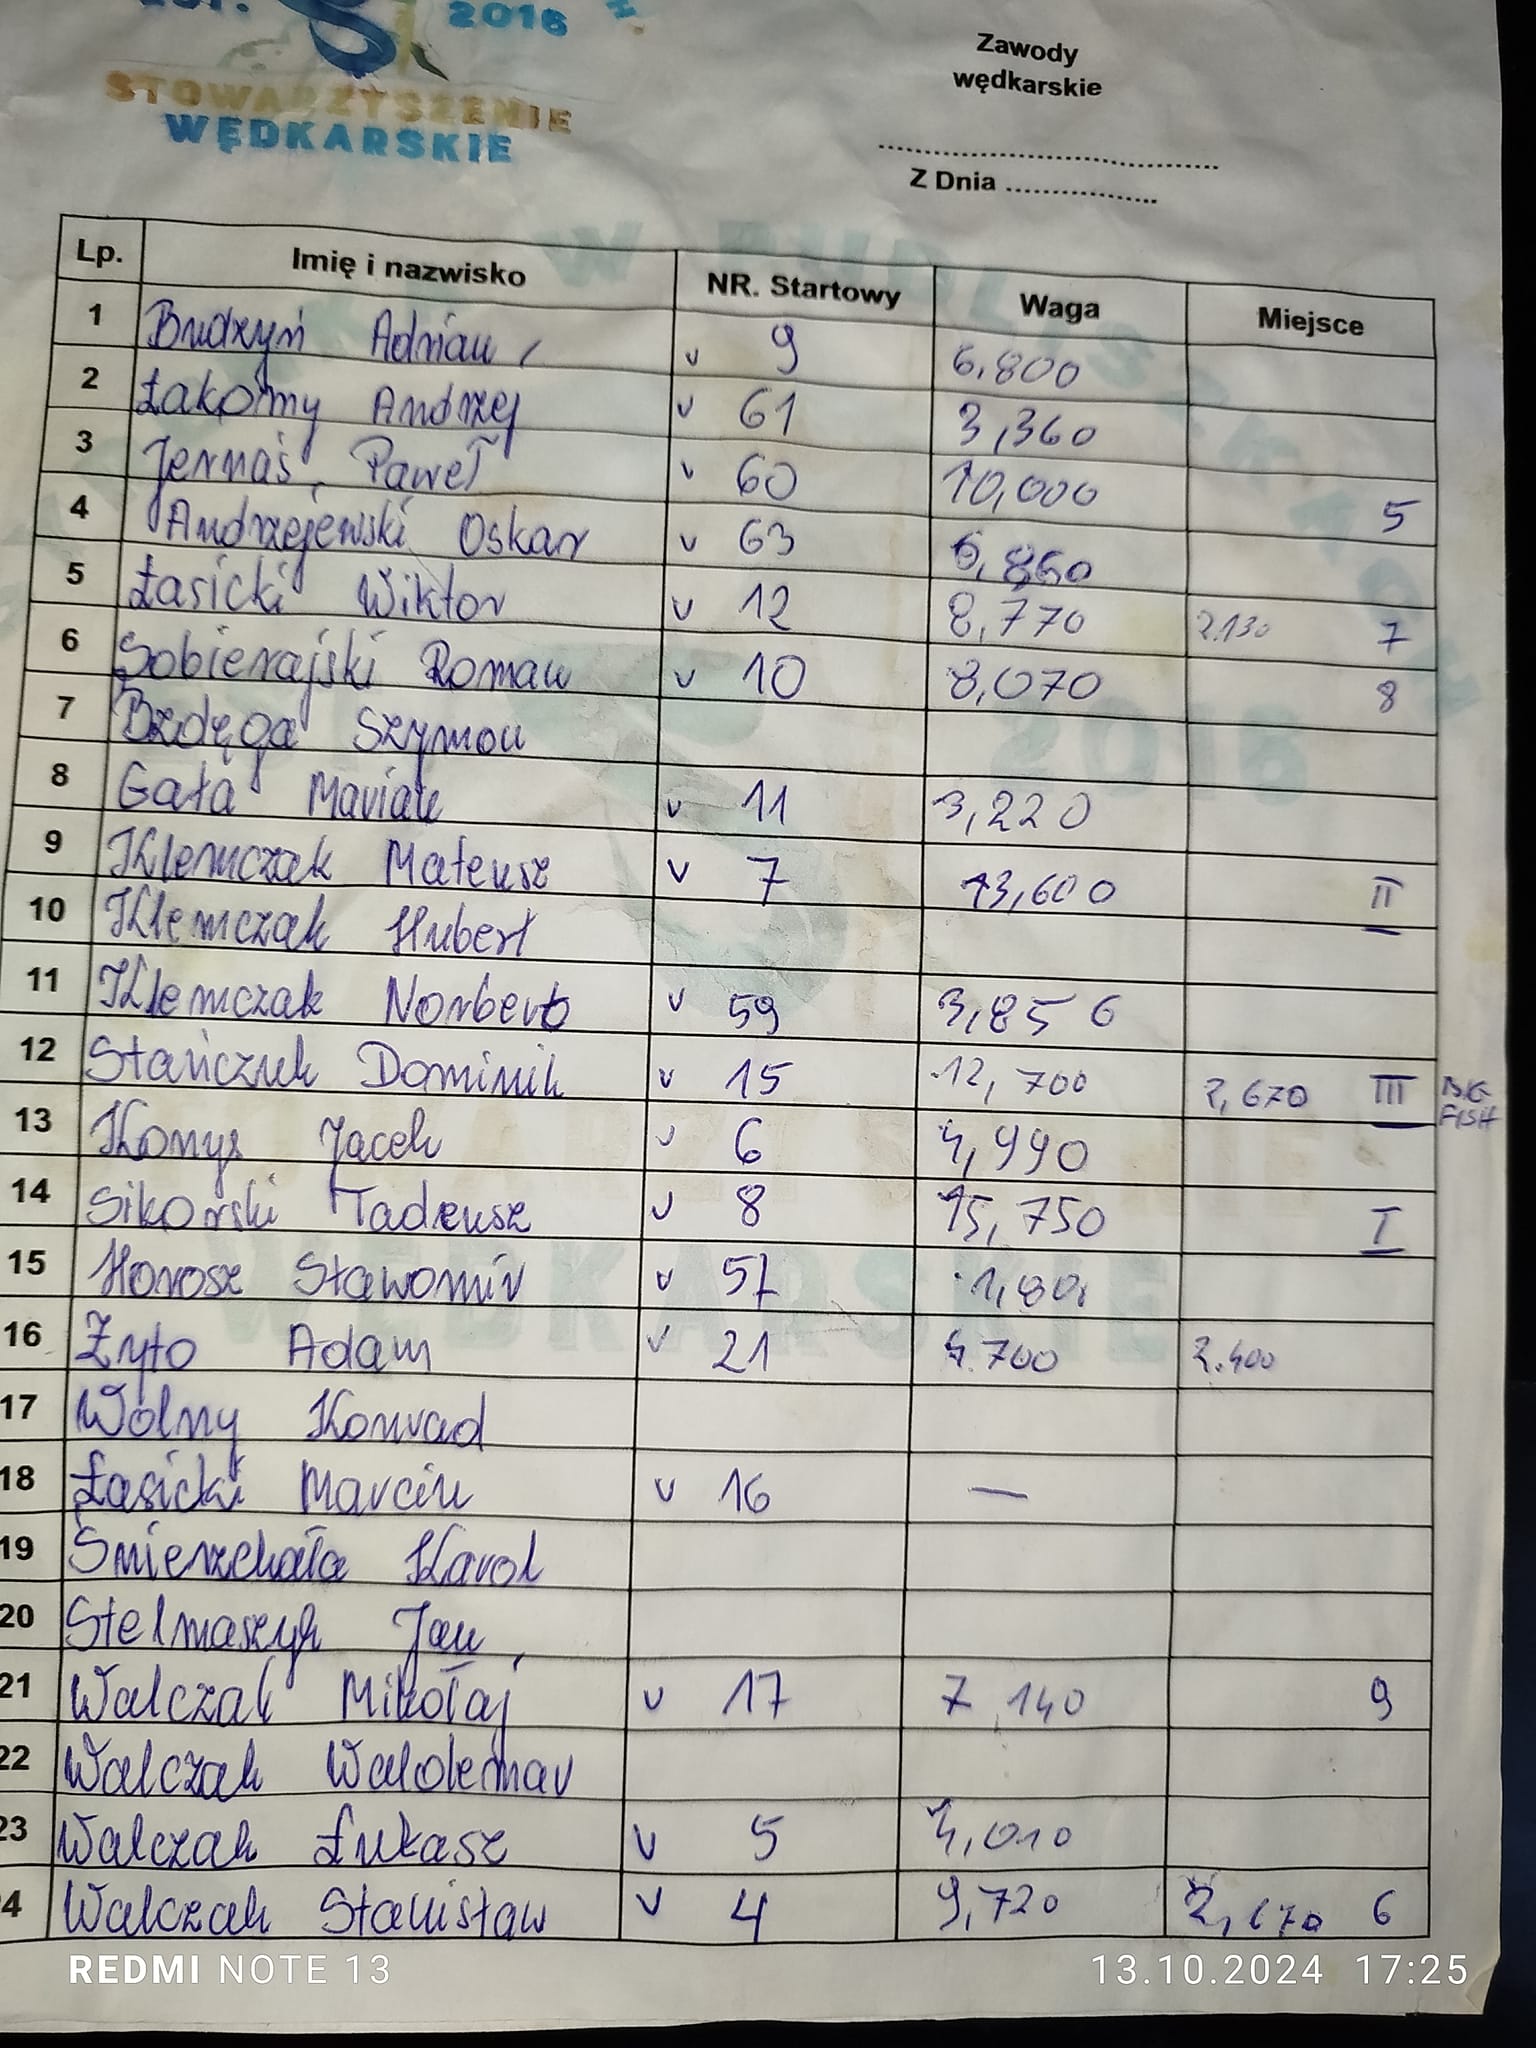 2016
STOWARZYSZENIE
WĘDKARSKIE
Zawody
wędkarskie
Z Dnia
Lp. Imię i nazwisko NR. Startowy Waga Miejsce
1 Budzyń Adrian v 9 6,800
2 Łakomy Andrzej v 61 3,360
3 Jernaś Paweł v 60 10,000 5
4 Andrzejewski Oskar v 63 6,860
5 Łasicki Wiktor v 12 8,770 2.130 7
6 Sobierajski Roman v 10 8,070 8
7 Bzdęga Szymon
8 Gała Marian v 11 3,220
9 Klemczak Mateusz v 7 13,600 II
10 Klemczak Hubert
11 Klemczak Norbert v 59 3,856
12 Stańczuk Dominik v 15 12,700 2,670 III BIG
FISH
13 Konys Jacek v 6 4,990
14 Sikorski Tadeusz v 8 15,750 I
15 Horosz Sławomir v 57
16 Żyto Adam v 21 4.700 2.400
17 Wolny Konrad
18 Łasicki Marcin v 16 —
19 Śmierzchała Karol
20 Stelmaszyk Jan
21 Walczak Mikołaj v 17 7 140 9
22 Walczak Waldemar
23 Walczak Łukasz v 5 4,010
4 Walczak Stanisław v 4 9,720 6
REDMI NOTE 13
13.10.2024 17:25